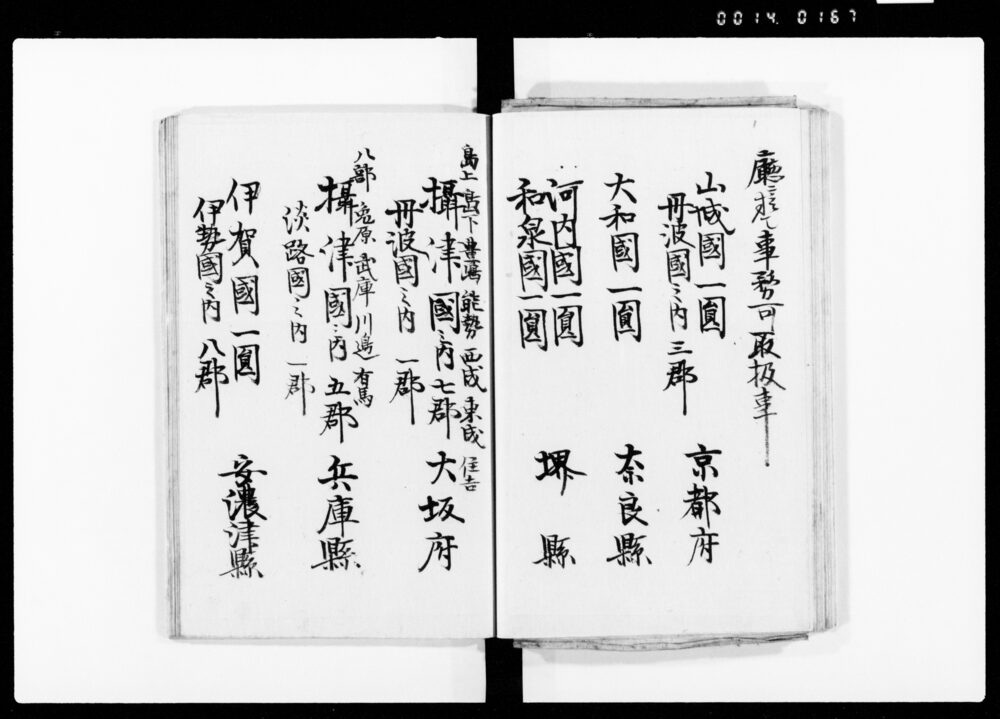 0014.0167
廳ニ於テ事務可取扱事
山城國一圓
丹波國之内三郡
京都府
大和國一圓
奈良縣
河内國一圓
和泉國一圓
堺縣
島上 島下 豊嶋 能勢 西成 東成 住吉
攝津國之内七郡
丹波國之内一郡
大坂府
八部 菟原 武庫 川邉 有馬
攝津國之内五郡
淡路國之内一郡
兵庫縣
伊賀國一圓
伊勢國之内八郡
安濃津縣